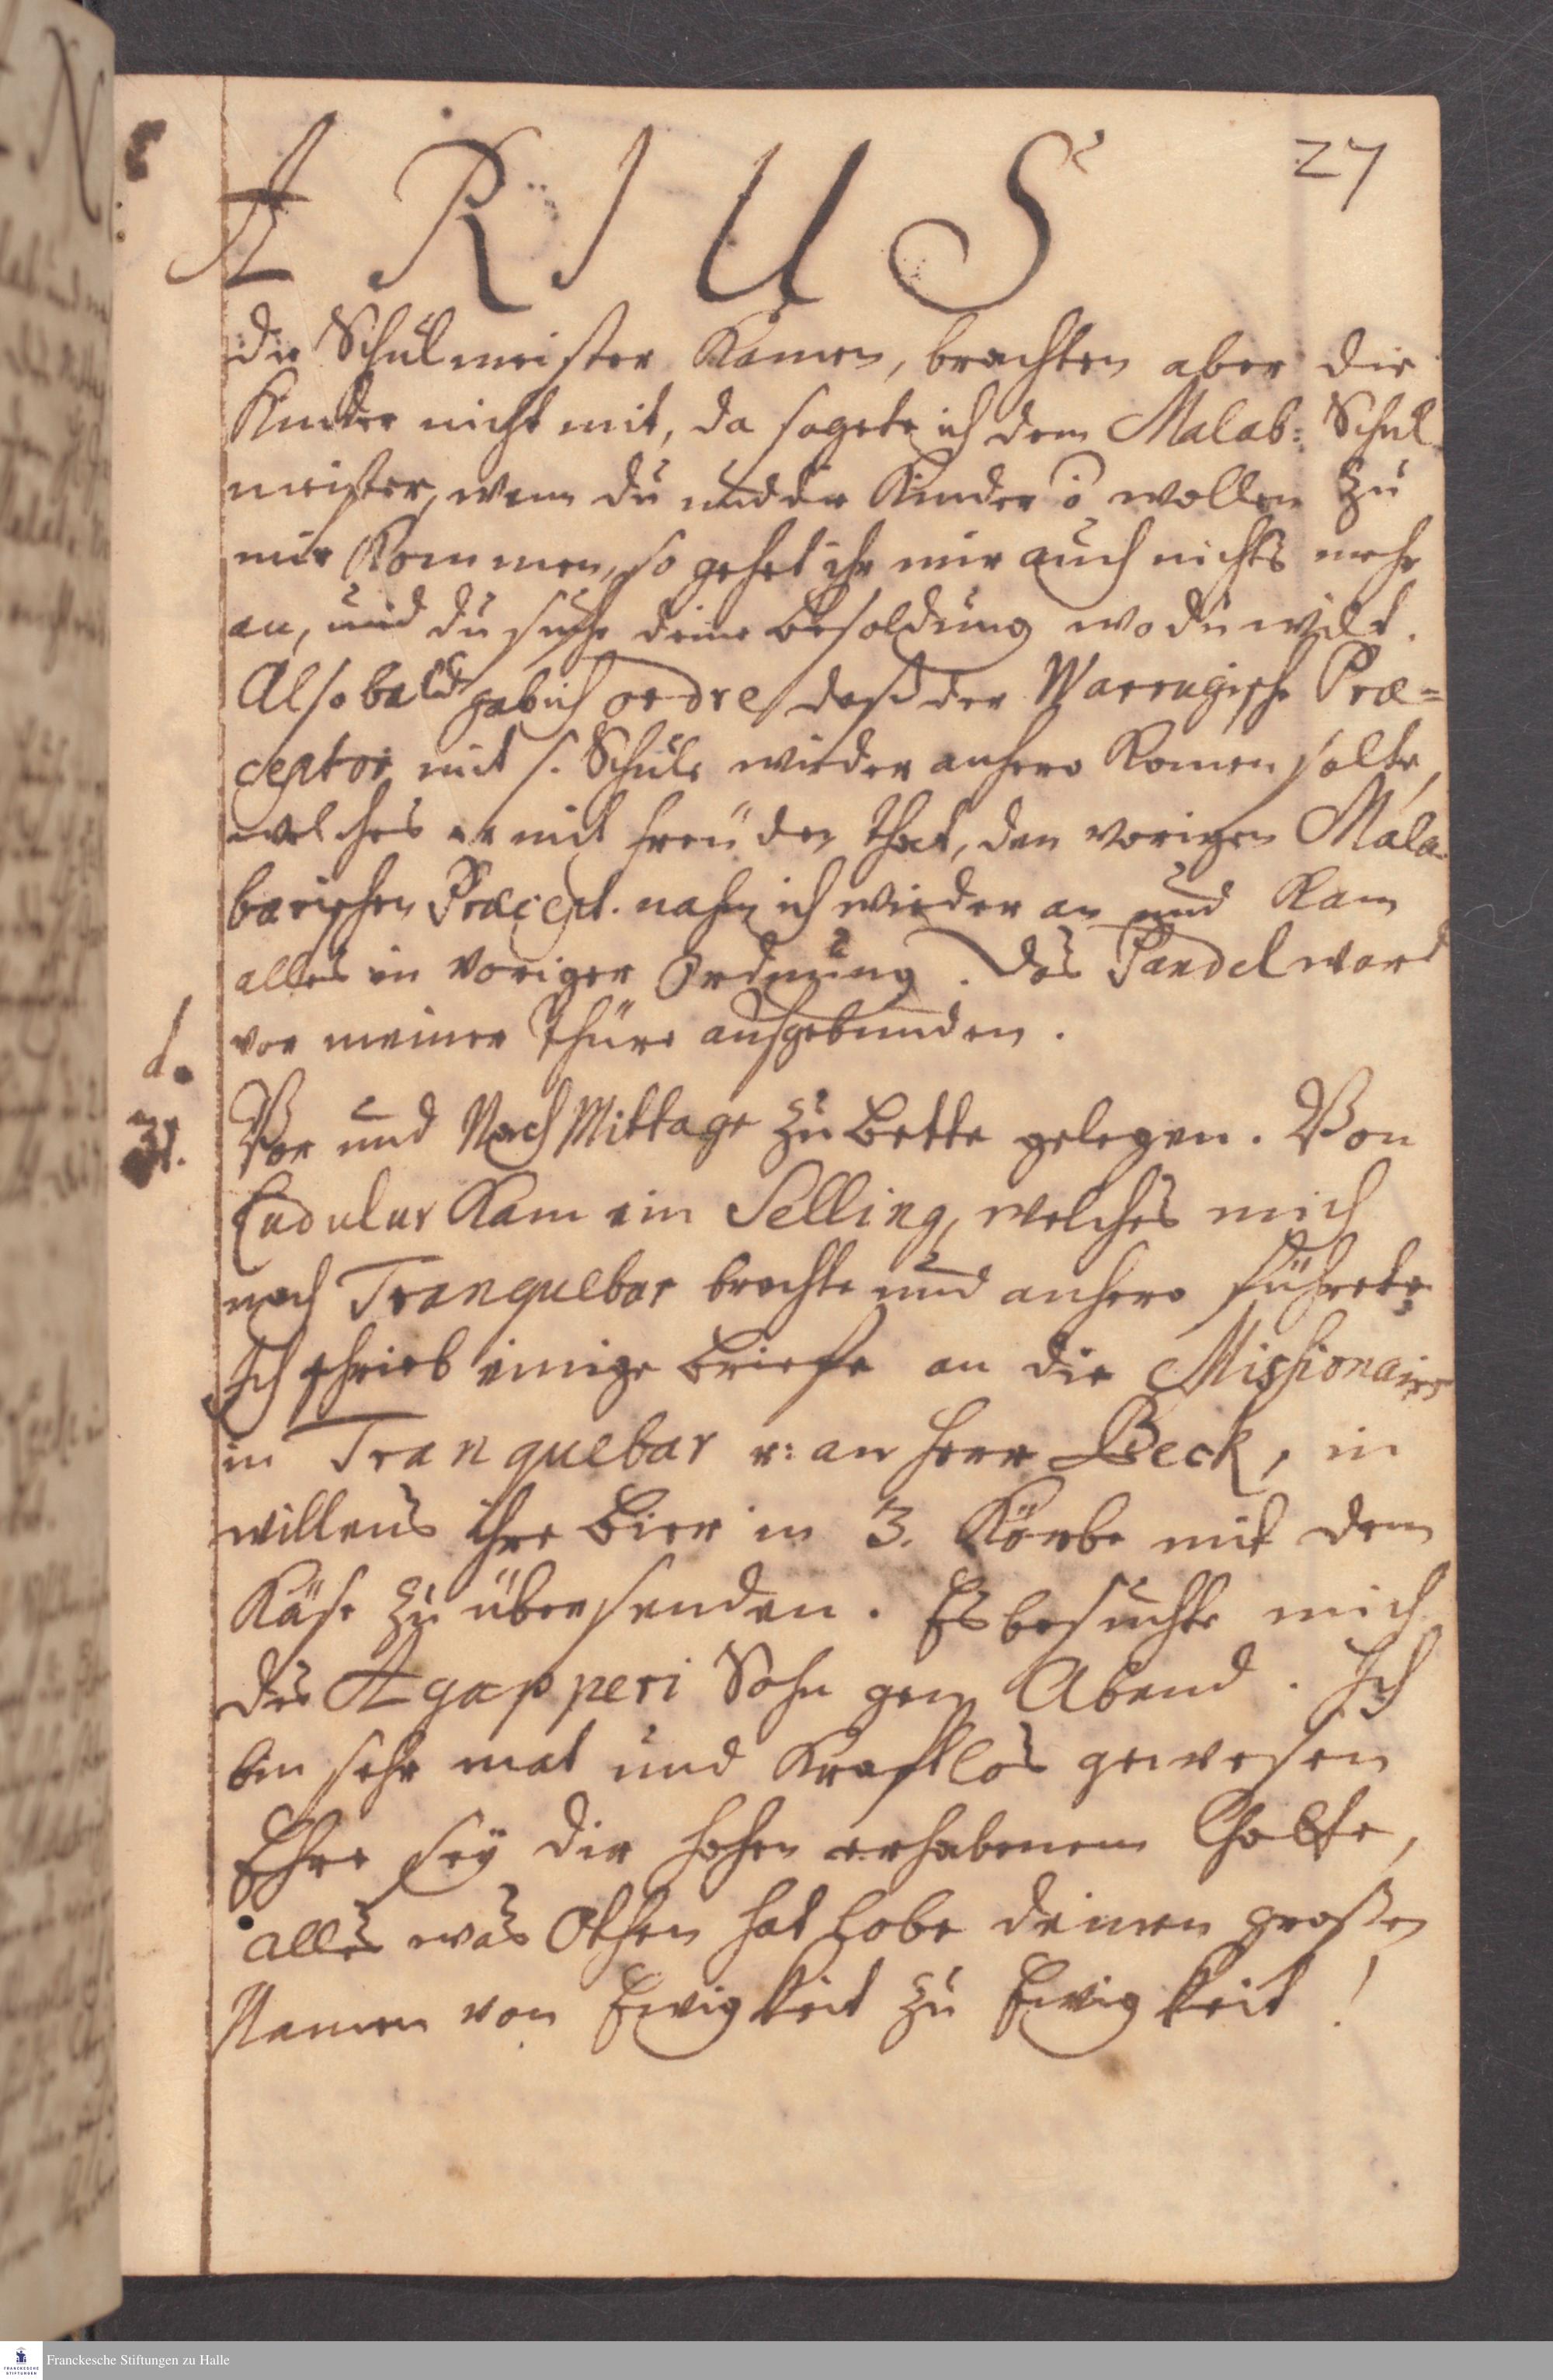 27
ARIUS
die Schulmeister kamen, brachten aber die
Kinder nicht mit, da sagete ich dem Malab: Schul
meister, wenn du und die Kinder ō wollen zu
mir kommen, so gehet ihr mir auch nichts mehr
an, und du suche deine besoldung wo du wilt.
Alsobald gab ich ordre, daß der Warrugische Præ=
ceptor mit s. Schule wieder anhero komen solte,
welches er mit freuden that, den vorigen Mala
barischen Præcept. nahm ich wieder an und kam
alles in voriger Ordnung. Das Pandel ward
vor meiner Thüre aufgebunden.
d.
31.
Vor und Nach Mittage zu bette gelegen. Von
Cudulur kam ein Selling, welches mich
nach Tranquebar brachte und anhero führete
Ich schrieb einige briefe an die Missionairs
in Tranquebar u: an Herr Beck, in
willens ihr bier in 3. Körbe mit dem
Käse zu übersenden. Es besuchte mich
des Agapperi Sohn gen Abend. Ich
bin sehr mat und krafftlos gewesen
Ehre sey dir hohen erhabenem Gotte,
alles was Othen hat lobe deinen großen
Namen von Ewigkeit zu Ewigkeit!
FRANCKESCHE STIFTUNGEN
Franckesche Stiftungen zu Halle